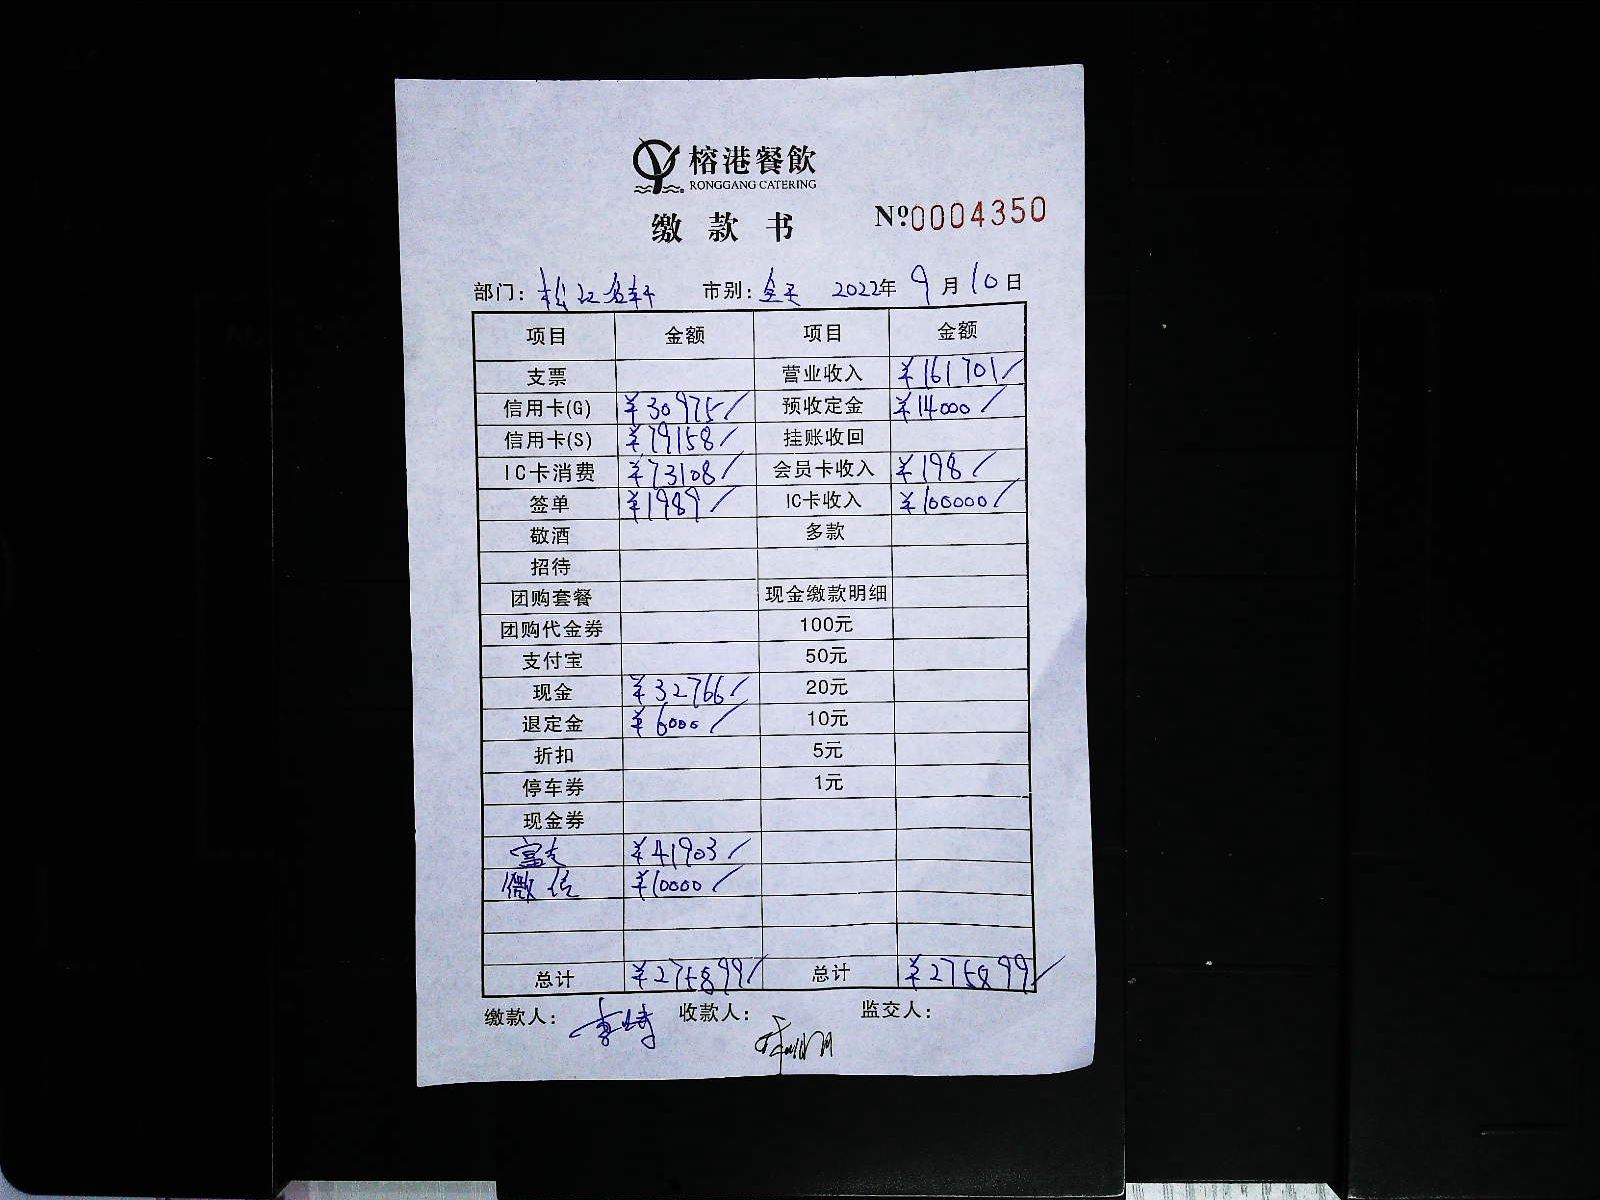 榕港餐飲
RONGGANG CATERING
缴款书 Nº0004350
部门：松江名轩 市别：全天 2022年9月10日
项目 金额 项目 金额
支票 营业收入 ¥161701/
信用卡(G) ¥30975/ 预收定金 ¥14000/
信用卡(S) ¥79158/ 挂账收回
IC卡消费 ¥73108/ 会员卡收入 ¥198/
签单 ¥1989/ IC卡收入 ¥100000/
敬酒 多款
招待
团购套餐 现金缴款明细
团购代金券 100元
支付宝 50元
现金 ¥32766/ 20元
退定金 ¥6000/ 10元
折扣 5元
停车券 1元
现金券
富友 ¥41903/
微信 ¥10000/
总计 ¥275899/ 总计 ¥275899/
缴款人： 收款人： 监交人：